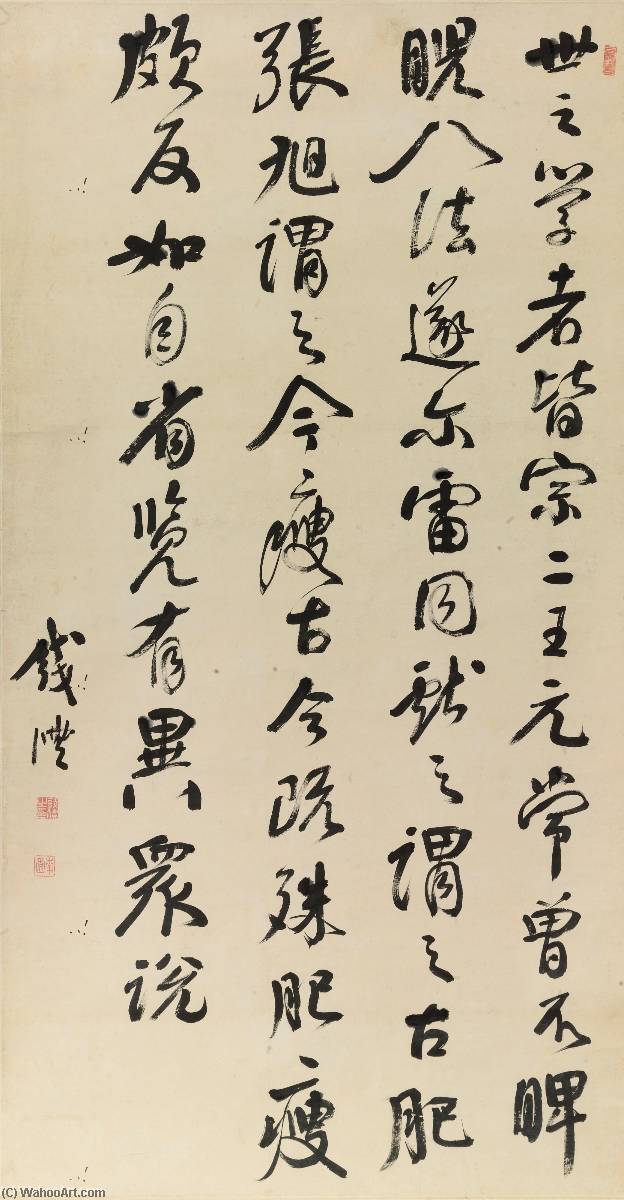 世之学者皆宗二王元常曾不睥
睨八法遂尔雷同獻之謂之古肥
張旭謂之今瘦古今既殊肥瘦
頗反如自省覽有異衆說
錢灃
(C) WahooArt.com